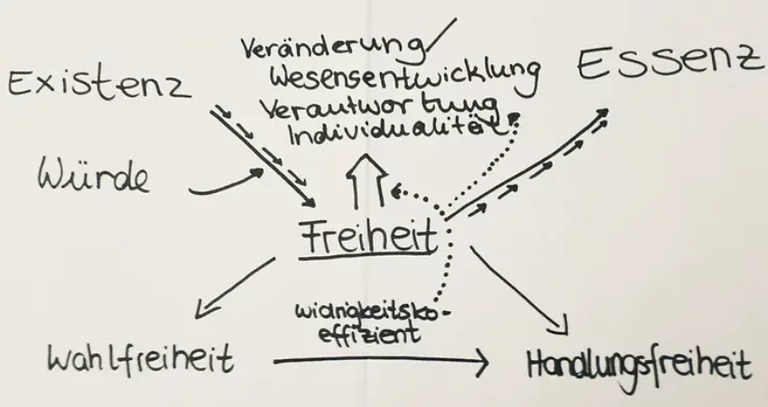 Veränderung/
Wesensentwicklung
Verantwortung
Individualität
Existenz
Essenz
Würde
Freiheit
widrigkeitsko-
effizient
Wahlfreiheit
Handlungsfreiheit